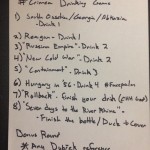 # Crimean Drinking Game
1) South Ossetia/Georgia/Abkhazia
- Drink 1
2) Reagan - Drink 1
3) "Russian Empire" - Drink 2
4) "New Cold War" - Drink 2
5) "Containment" - Drink 3
6) Hungary in '56 - Drink 4! #Facepalm
7) "Rollback" - finish your drink
8) "Seven days to the River Rhine" -
- Finish the bottle / Duck + Cover
Bonus Round
# Amy reference